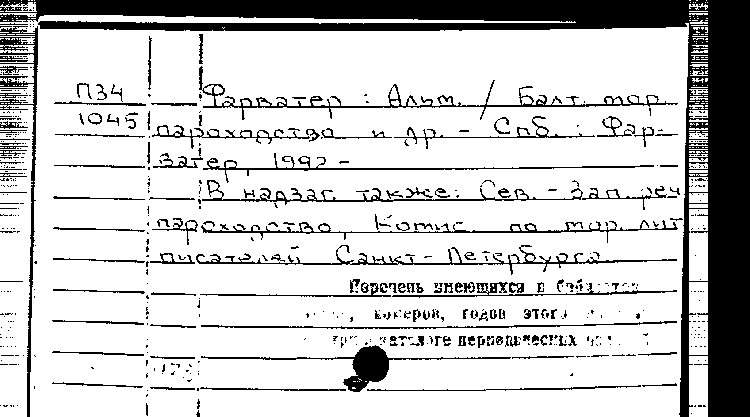 П34
1045
Фарватер : Альм. / Балт. мор.
пароходство и др. - Спб. : Фар-
ватер, 1992 -
В надзаг. также: Сев. - Зап. реч
пароходство, Комис. по мор. лит
писателей Санкт-Петербурга
Перечень имеющихся в
номеров, годов этого
каталоге периодических